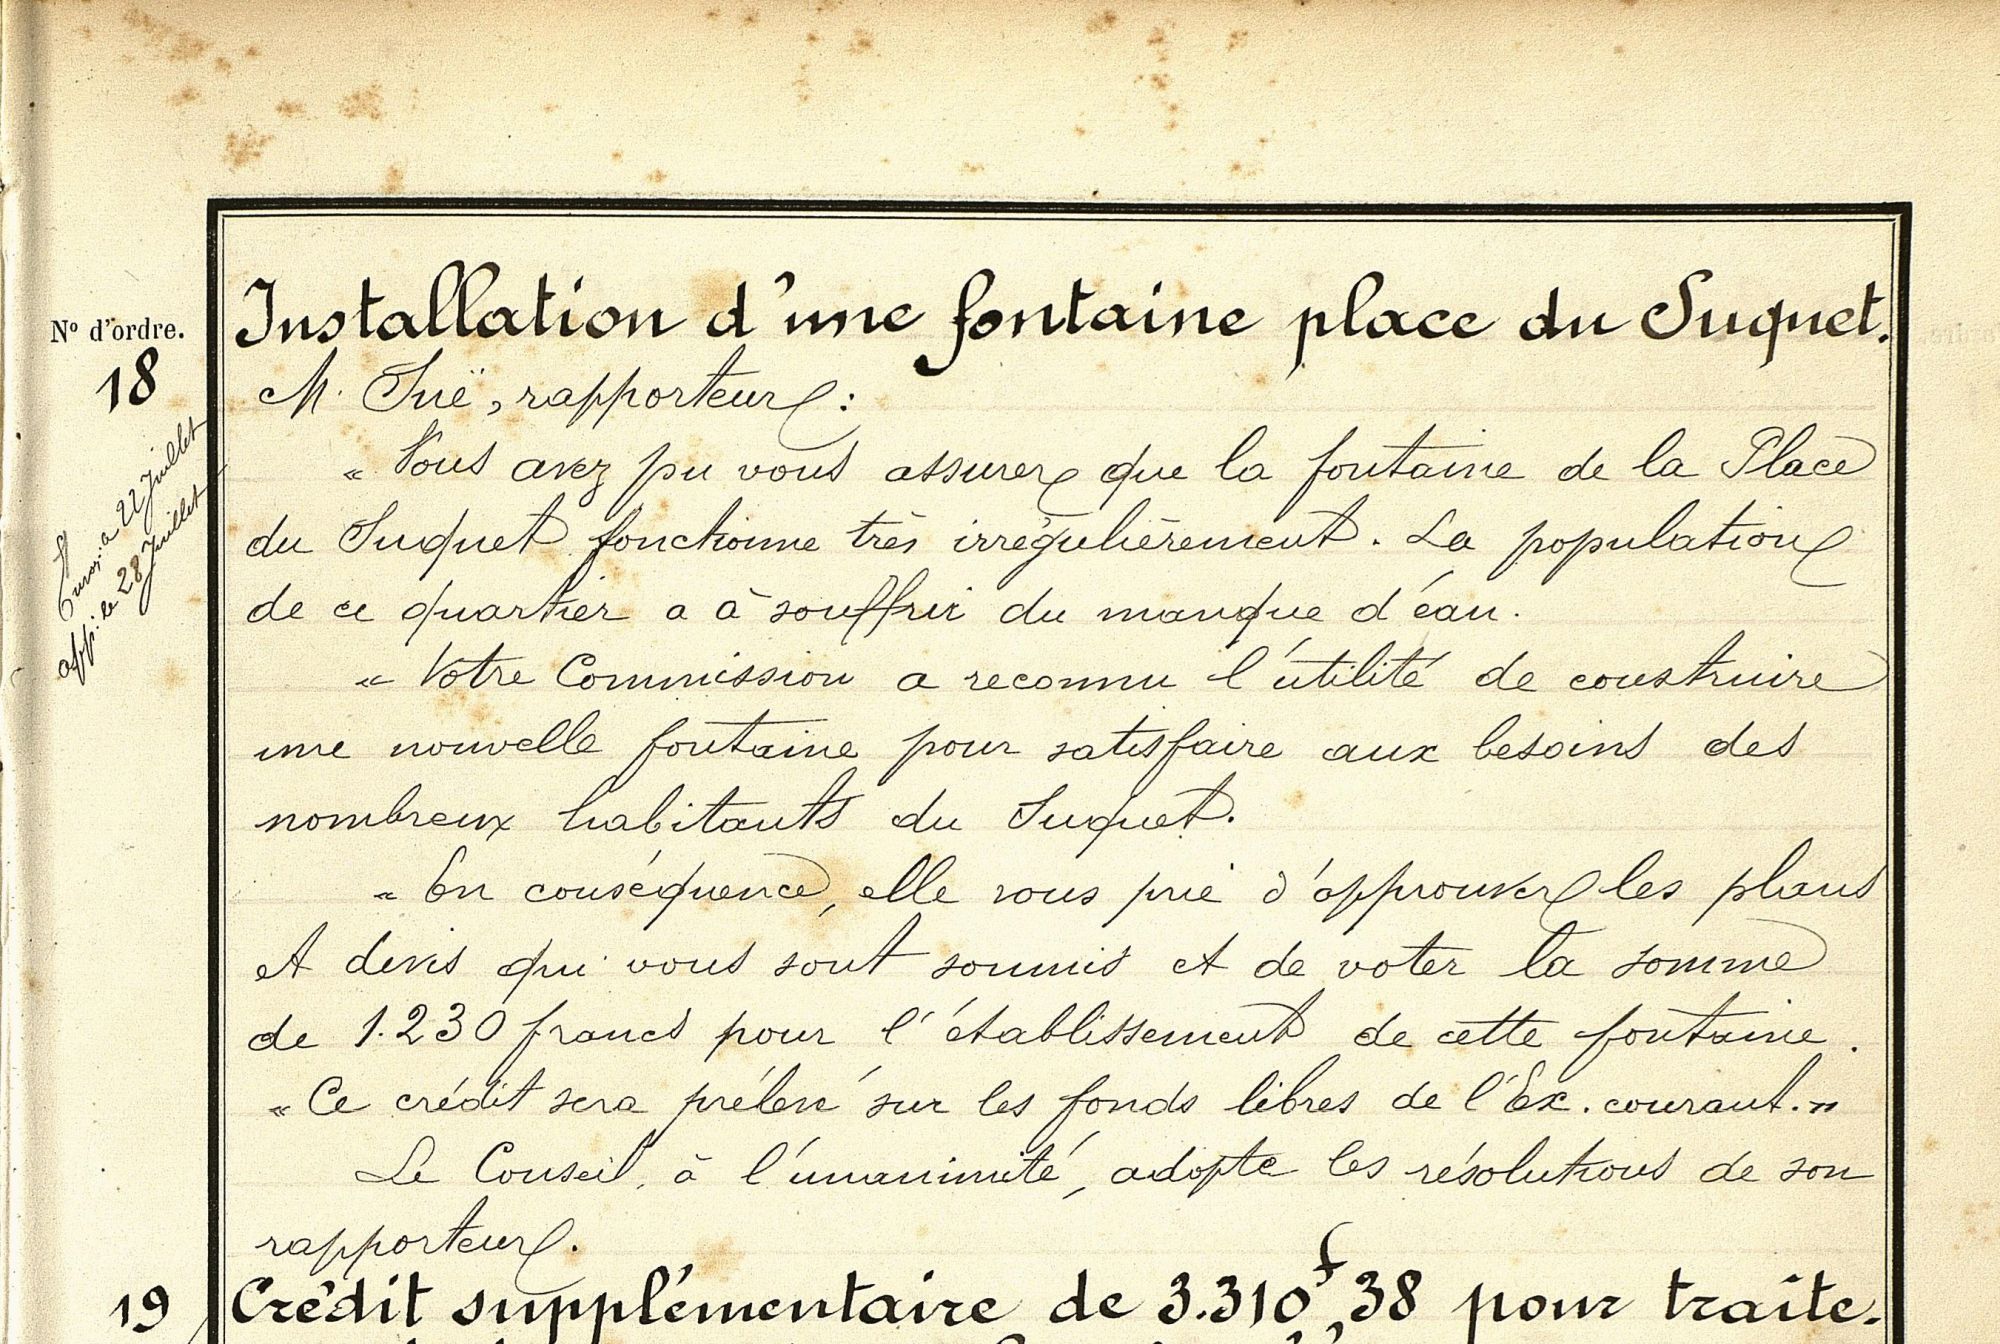 Installation d'une fontaine place du Suquet.
N° d'ordre.
18
M. Suë, rapporteur :
« Vous avez pu vous assurer que la fontaine de la Place
du Suquet fonctionne très irrégulièrement. La population
de ce quartier a à souffrir du manque d'eau.
Envoi : a 22 Juillet
app. : le 28 Juillet
« Votre Commission a reconnu l'utilité de construire
une nouvelle fontaine pour satisfaire aux besoins des
nombreux habitants du Suquet.
« En conséquence, elle vous prie d'approuver les plans
et devis qui vous sont soumis et de voter la somme
de 1.230 francs pour l'établissement de cette fontaine.
« Ce crédit sera prélevé sur les fonds libres de l'Ex. courant. »
Le Conseil, à l'unanimité, adopte les résolutions de son
rapporteur.
19
Crédit supplémentaire de 3.310f,38 pour traite-